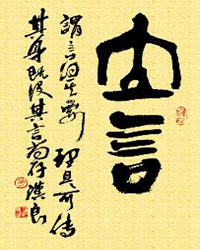 立言
謂言得其要理足可傳
其身既没其言尚存漢良